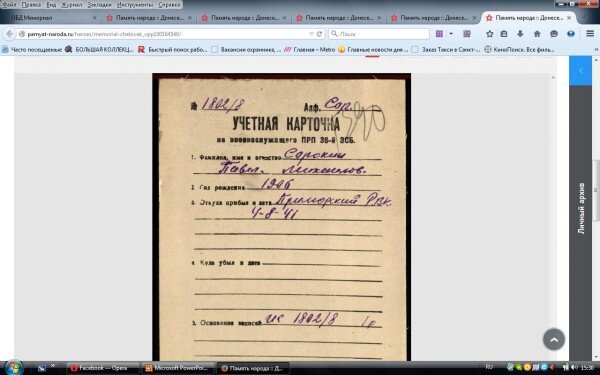 Файл Правка Вид Журнал Закладки Инструменты Справка
ОБД Мемориал
Память народа :: Донесе...
Память народа :: Донесе...
Память народа :: Донесе...
Память народа :: Донесе...
Память народа :: Донесе...
pamyat-naroda.ru/heroes/memorial-chelovek_vpp100164540/
Поиск
Часто посещаемые
БОЛЬШАЯ КОЛЛЕКЦ...
Быстрый поиск рабо...
Вакансии охранника, ...
Главная – Metro
Главные новости дня ...
Заказ Такси в Санкт-...
КиноПоиск. Все фил...
№ 1802/8 Алф. Сор.
УЧЕТНАЯ КАРТОЧКА
на военнослужащего ПРП 36-й ЗСБ.
1. Фамилия, имя и отчество Сорокин
Павел
2 Год рождения 1906
3 Откуда прибыл и дата Приморский РВК.
4-8-41
4. Куда убыл и дата
5. Основание записей 1802/8
Личный архив
Facebook — Opera
Microsoft PowerPoi...
Память народа :: Д...
RU
15:30